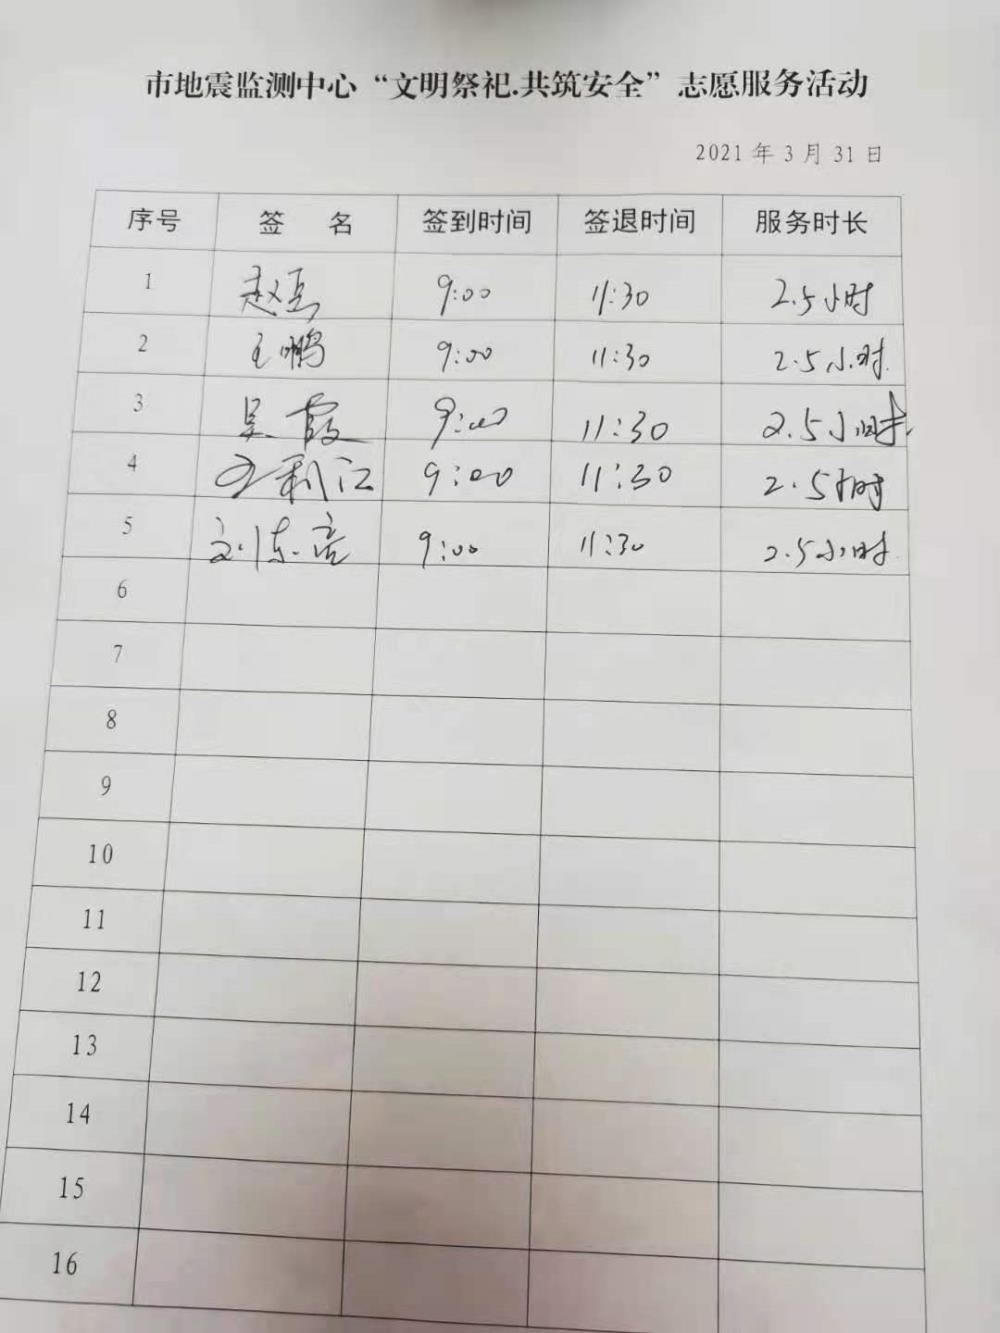 市地震监测中心“文明祭祀.共筑安全”志愿服务活动
2021年3月31日
序号 签 名 签到时间 签退时间 服务时长
1 赵 9:00 11:30 2.5小时
2 王鹏 9:00 11:30 2.5小时
3 吴霞 9:00 11:30 2.5小时
4 王利江 9:00 11:30 2.5小时
5 刘东 9:00 11:30 2.5小时
6
7
8
9
10
11
12
13
14
15
16